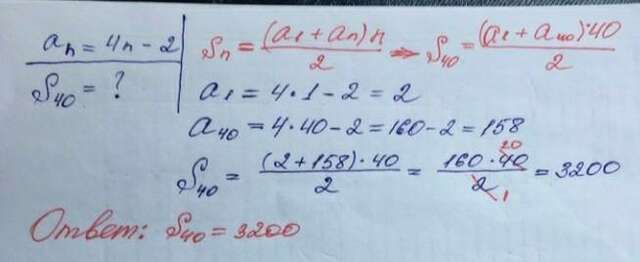 aₙ = 4n - 2
S₄₀ = ?
Sₙ = (a₁ + aₙ)n / 2 ⇒ S₄₀ = (a₁ + a₄₀)·40 / 2
a₁ = 4·1 - 2 = 2
a₄₀ = 4·40 - 2 = 160 - 2 = 158
S₄₀ = (2 + 158)·40 / 2 = 160·40 20 / 2 1 = 3200
Ответ: S₄₀ = 3200